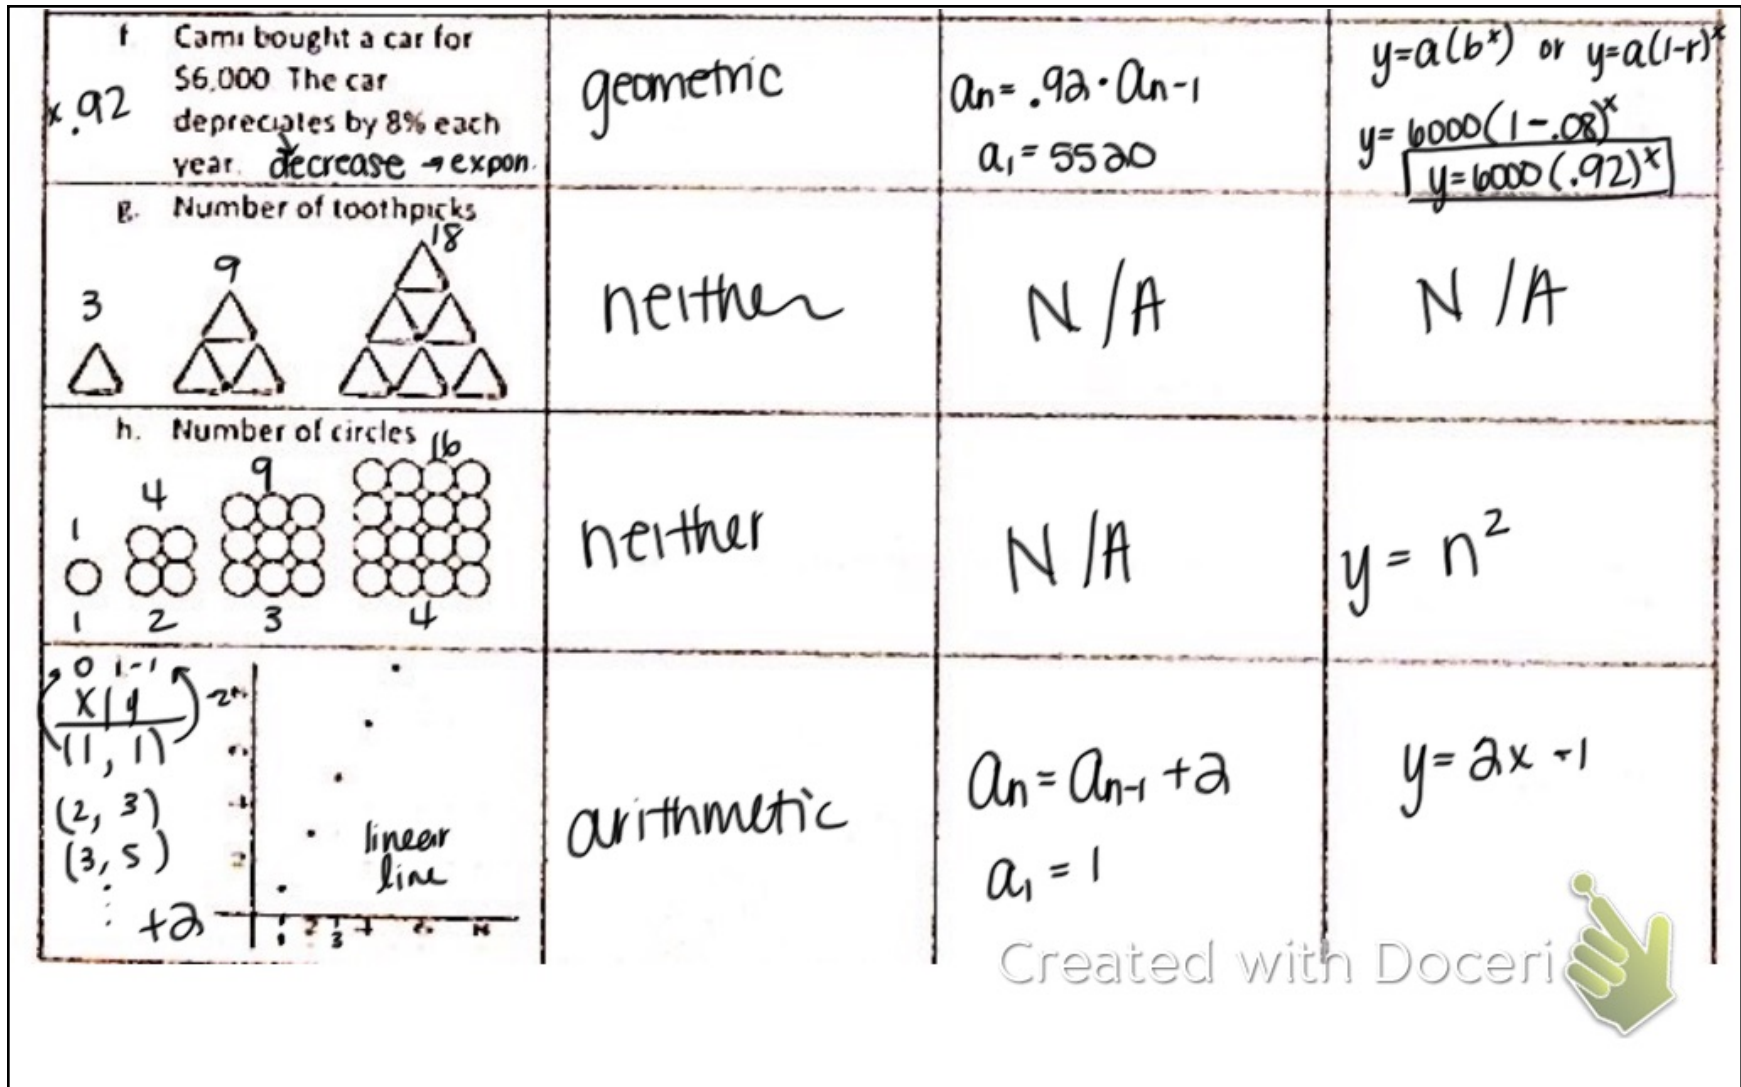 f. Cami bought a car for
$6,000 The car
depreciates by 8% each
year. decrease → expon.
x .92
geometric
an = .92 · an-1
a1 = 5520
y=a(b^x) or y=a(1-r)^x
y= 6000(1-.08)^x
y=6000(.92)^x
g. Number of toothpicks
3 9 18
neither
N/A
N/A
h. Number of circles
1 4 9 16
1 2 3 4
neither
N/A
y = n²
0 1 - 1
x | y
(1, 1)
(2, 3)
(3, 5)
+2
2
1 2 3
linear
line
arithmetic
an = an-1 +2
a1 = 1
y= 2x -1
Created with Doceri